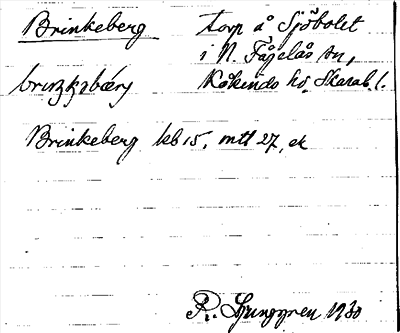 Brinkeberg torp å Sjöbolet
i N. Fågelås sn,
Kåkinds hd, Skarab. l.
Brinkeberg kb 15, mtl 27, ek
R. Ljunggren 1930